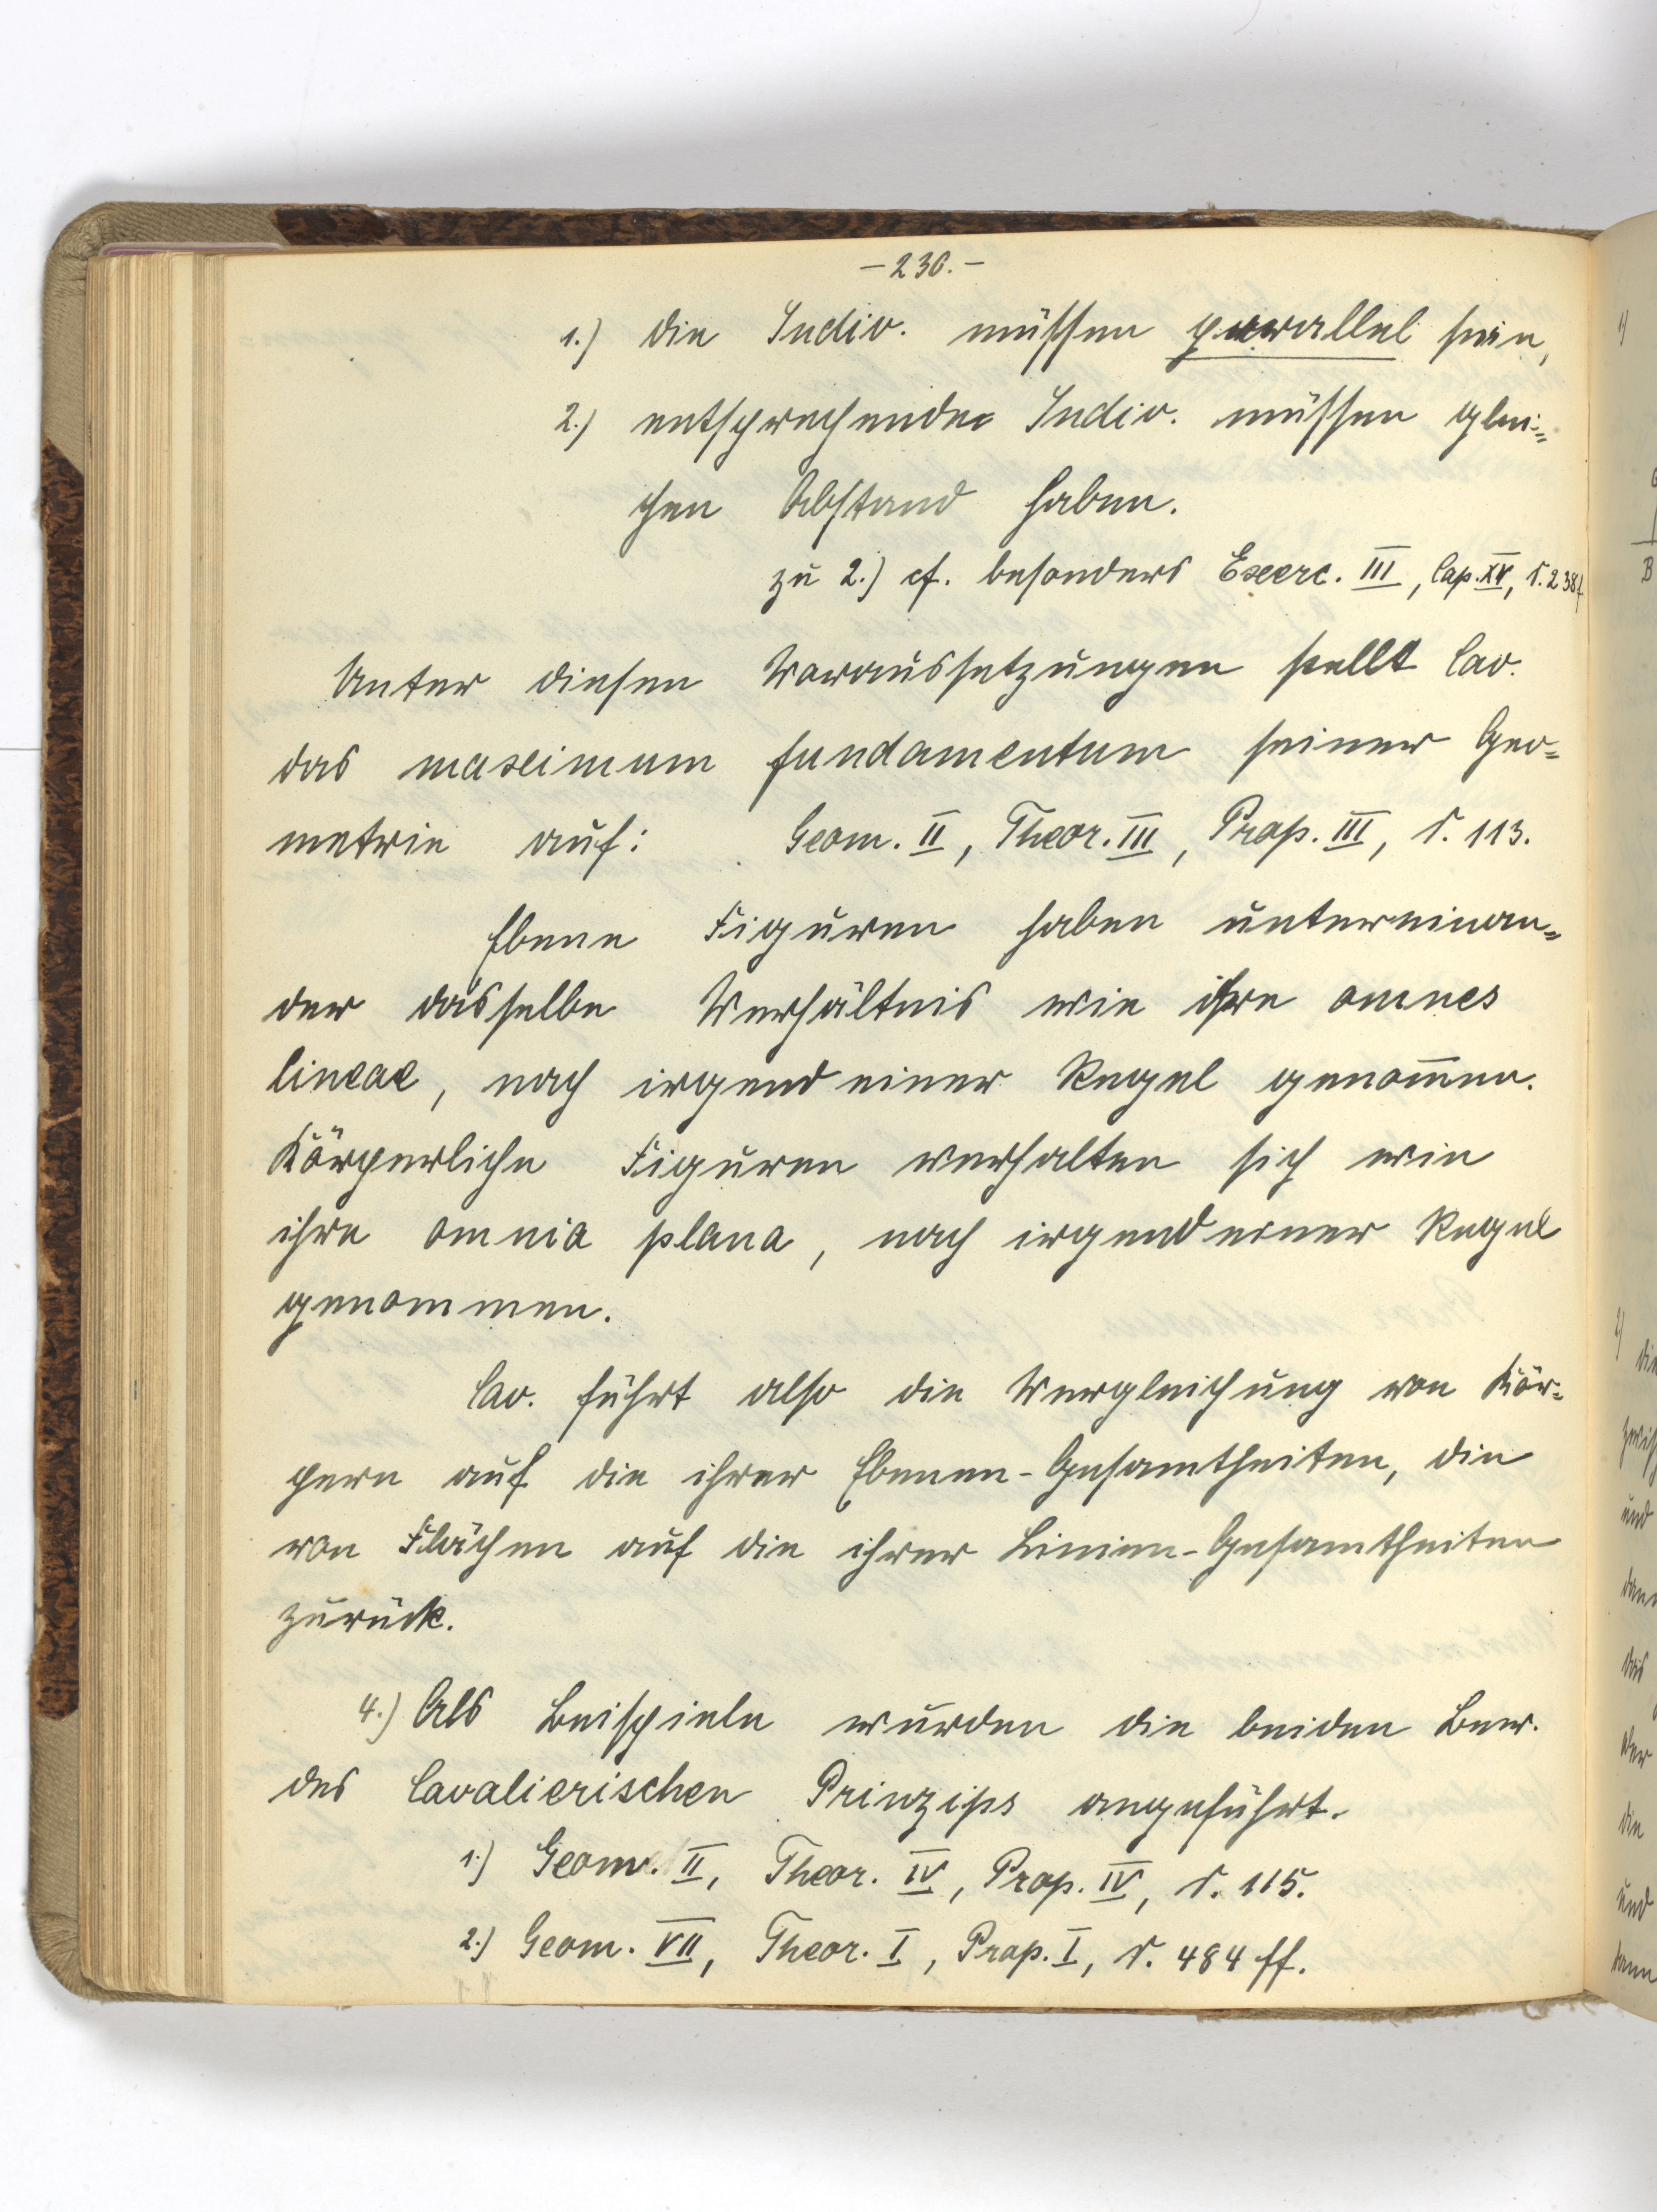 - 230. -
1.) die Indiv. müssen parallel sein,
2.) entsprechende Indiv. müssen glei=
chen Abstand haben.
zu 2.) cf. besonders Exerc. III, Cap. XV, S. 238f
Unter diesen Voraussetzungen stellt Cav.
das maximum fundamentum seiner Geo=
metrie auf: Geom. II, Theor. III, Prop. III, S. 113.
Ebene Figuren haben untereinan=
der dasselbe Verhältnis wie ihre omnes
lineae, nach irgend einer Regel genom̅en.
Körperliche Figuren verhalten sich wie
ihre omnia plana, nach irgend einer Regel
genommen.
Cav. führt also die Vergleichung von Kör=
pern auf die ihrer Ebenen-Gesamtheiten, die
von Flächen auf die ihrer Linien-Gesamtheiten
zurück.
4.) Als Beispiele wurden die beiden Bew.
des Cavalierischen Prinzips angeführt.
1.) Geom. II, Theor. IV, Prop. IV, S. 115.
2.) Geom. VII, Theor. I, Prop. I, S. 484 ff.
B
die
und
das
der
die
und
kann